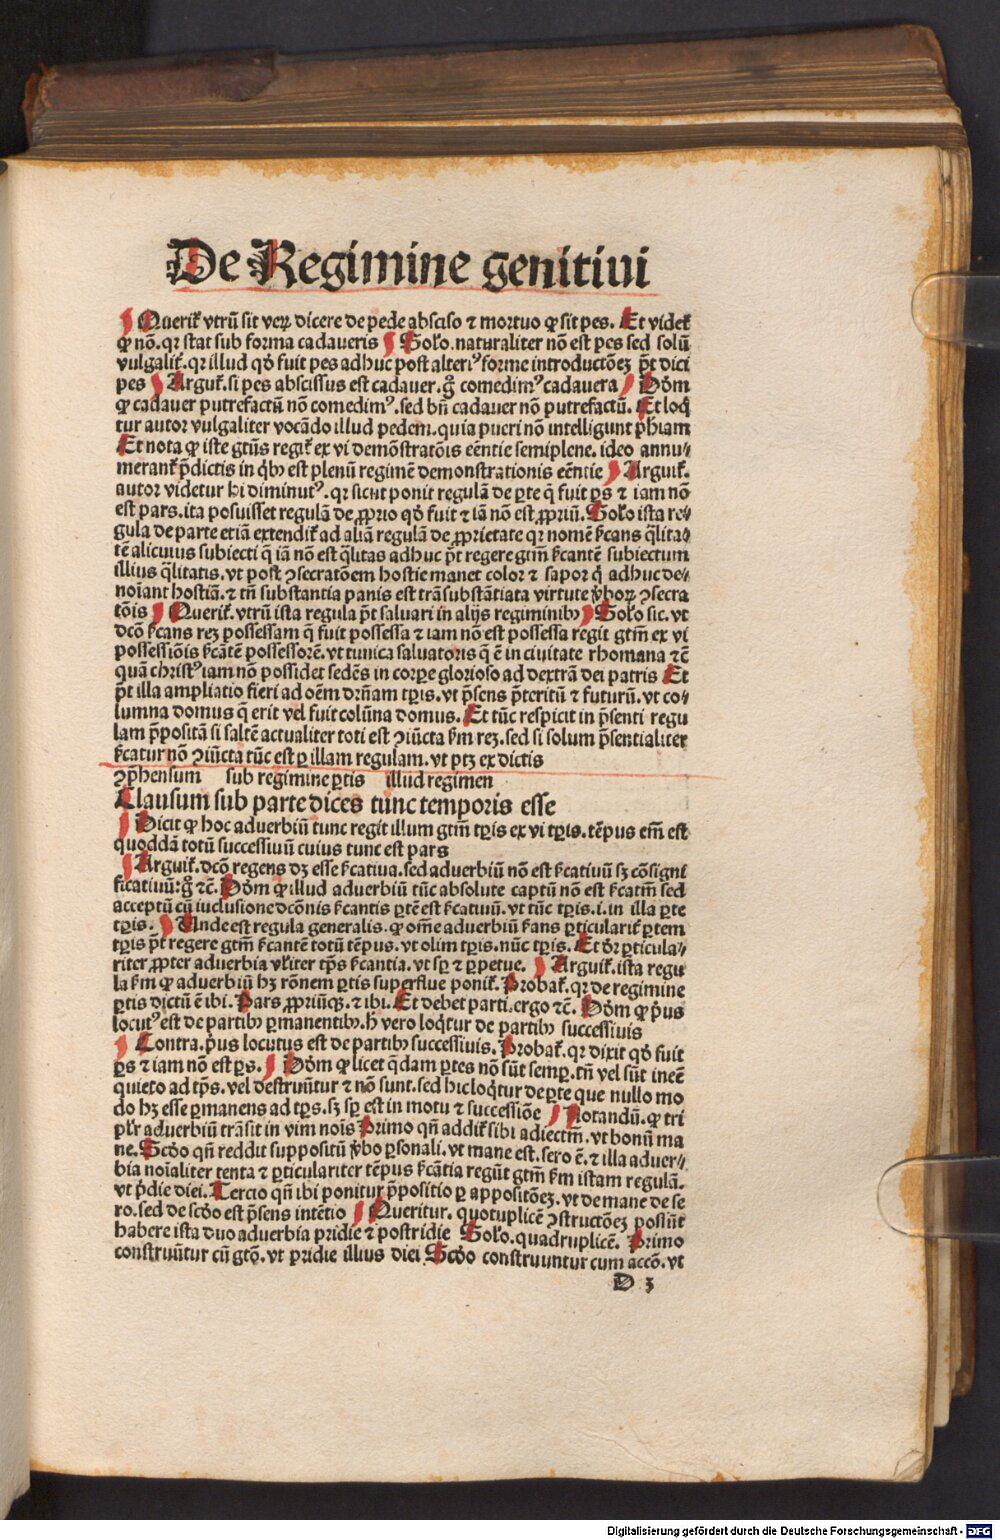 De Regimine genitiui
Querit᷑ vtrū sit veꝝ dicere de pede absciso ⁊ mortuo ꝙ sit pes. Et videt᷑
ꝙ nō. qꝛ stat sub forma cadaueris Solo. naturaliter nō est pes sed solū
vulgalit᷑. qꝛ illud qđ fuit pes adhuc post alteriꝰ forme introductōeꝫ p̄t dici
pes Arguit᷑. si pes abscissus est cadauer. g̊ comedimꝰ cadauera Dōm
ꝙ cadauer putrefactū nō comedimꝰ. sed bn̄ cadauer nō putrefactū. Et loq̇
tur autor vulgaliter vocādo illud pedem. quia pueri nō intelligunt ph̄iam
Et nota ꝙ iste gtn̄s regit᷑ ex vi demōstratōis eēntie semiplene. ideo annu⸗
merant᷑ p̄dictis in qͥbꝫ est plenū regimē demonstrationis eēntie Arguit᷑.
autor videtur hi diminutꝰ. qꝛ sicut ponit regulā de ꝑte q̄ fuit ꝑs ⁊ iam nō
est pars. ita posuisset regulā de ꝓprio qđ fuit ⁊ iā nō est ꝓpriū. Solo ista re⸗
gula de parte etiā extendit᷑ ad aliā regulā de ꝓprietate qꝛ nomē ſcans q̄lita⸗
tē alicuius subiecti q̄ iā nō est q̄litas adhuc p̄t regere gtm̄ ſcantē subiectum
illius q̄litatis. vt post ꝯsecratōem hostie manet color ⁊ sapor q̇ adhuc de⸗
noīant hostiā. ⁊ tn̄ substantia panis est trāsubstātiata virtute v̄boꝝ ꝯsecra
tōis Querit᷑. vtrū ista regula p̄t saluari in alijs regiminibꝫ Solo sic. vt
dcō ſcans reꝫ possessam q̄ fuit possessa ⁊ iam nō est possessa regit gtm̄ ex vi
possessiōis ſcātē possessorē. vt tunica saluatoris q̄ ē in ciuitate rhomana ⁊cē
quā christꝰ iam nō possidet sedēs in corꝑe glorioso ad dextrā dei patris Et
p̄t illa ampliatio fieri ad oēm drn̄am tꝑis. vt p̄sens p̄teritū ⁊ futurū. vt co⸗
lumna domus q̄ erit vel fuit colūna domus. Et tūc respicit in p̄senti regu
lam p̄positā si saltē actualiter toti est ꝯiūcta ſm reꝫ. sed si solum p̄sentialiter
ſcatur nō ꝯiūcta tūc est ꝑ illam regulam. vt ptꝫ ex dictis
ꝯp̄hensum sub regimine ꝑtis illud regimen
Clausum sub parte dices tunc temporis esse
Dicit ꝙ hoc aduerbiū tunc regit illum gtm̄ tꝑis ex vi tꝑis. tēpus em̄ est
quoddā totū successiuū cuius tunc est pars
Arguit᷑. dcō regens dꝫ esse ſcatiua. sed aduerbiū nō est ſcatiuū sꝫ cōsigni
ficatiuū: g̊ ⁊cē. Dōm ꝙ illud aduerbiū tūc absolute captū nō est ſcatm̄ sed
acceptū cū iuclusione dcōnis ſcantis ꝑtē est ſcatiuū. vt tūc tꝑis. i. in illa ꝑte
tꝑis. Unde est regula generalis. ꝙ om̄e aduerbiū ſcans ꝑticularit᷑ ꝑtem
tꝑis p̄t regere gtm̄ ſcantē totū tēpus. vt olim tꝑis. nūc tꝑis. Et dr̄ ꝑticula⸗
riter ꝓpter aduerbia vl̄iter tp̄s ſcantia. vt sꝑ ⁊ ꝑpetue. Arguit᷑. ista regu
la ſm ꝙ aduerbiū hꝫ rōnem ꝑtis superflue ponit᷑. Probat᷑. qꝛ de regimine
ꝑtis dictū ē ibi. Pars ꝓpriūqꝫ. ⁊ ibi. Et debet parti. ergo ⁊cē. Dōm ꝙ p̄us
locutꝰ est de partibꝫ ꝑmanentibꝫ. h̄ vero loq̇tur de partibꝫ successiuis
Contra. p̄us locutus est de partibꝫ successiuis. Probat᷑. qꝛ dixit qđ fuit
ꝑs ⁊ iam nō est ꝑs. Dōm ꝙ licet q̄dam ꝑtes nō sūt semꝑ. tn̄ vel sūt in eē
quieto ad tp̄s. vel destruūtur ⁊ nō sunt. sed hic loq̇tur de ꝑte que nullo mo
do hꝫ esse ꝑmanens ad tꝑs. sꝫ sꝑ est in motu ⁊ successiōe Notandū. ꝙ tri
pl̄r aduerbiū trāsit in vim nois Primo qn̄ addit᷑ sibi adiectm̄. vt bonū ma
ne. Scđo qn̄ reddit suppositū v̄bo ꝑsonali. vt mane est. sero ē. ⁊ illa aduer⸗
bia noīaliter tenta ⁊ ꝑticulariter tēpus ſcātia regūt gtm̄ ſm istam regulā.
vt p̄die diei. Tercio qn̄ ibi ponitur p̄positio ꝑ appositōeꝫ. vt de mane de se
ro. sed de scđo est p̄sens intētio Queritur. quotuplicē ꝯstructōeꝫ possūt
habere ista duo aduerbia pridie ⁊ postridie Solo. quadruplicē. Primo
construūtur cū gtō. vt pridie illius diei Scđo construuntur cum accō. vt
D 3
Digitalisierung gefördert durch die Deutsche Forschungsgemeinschaft - DFG